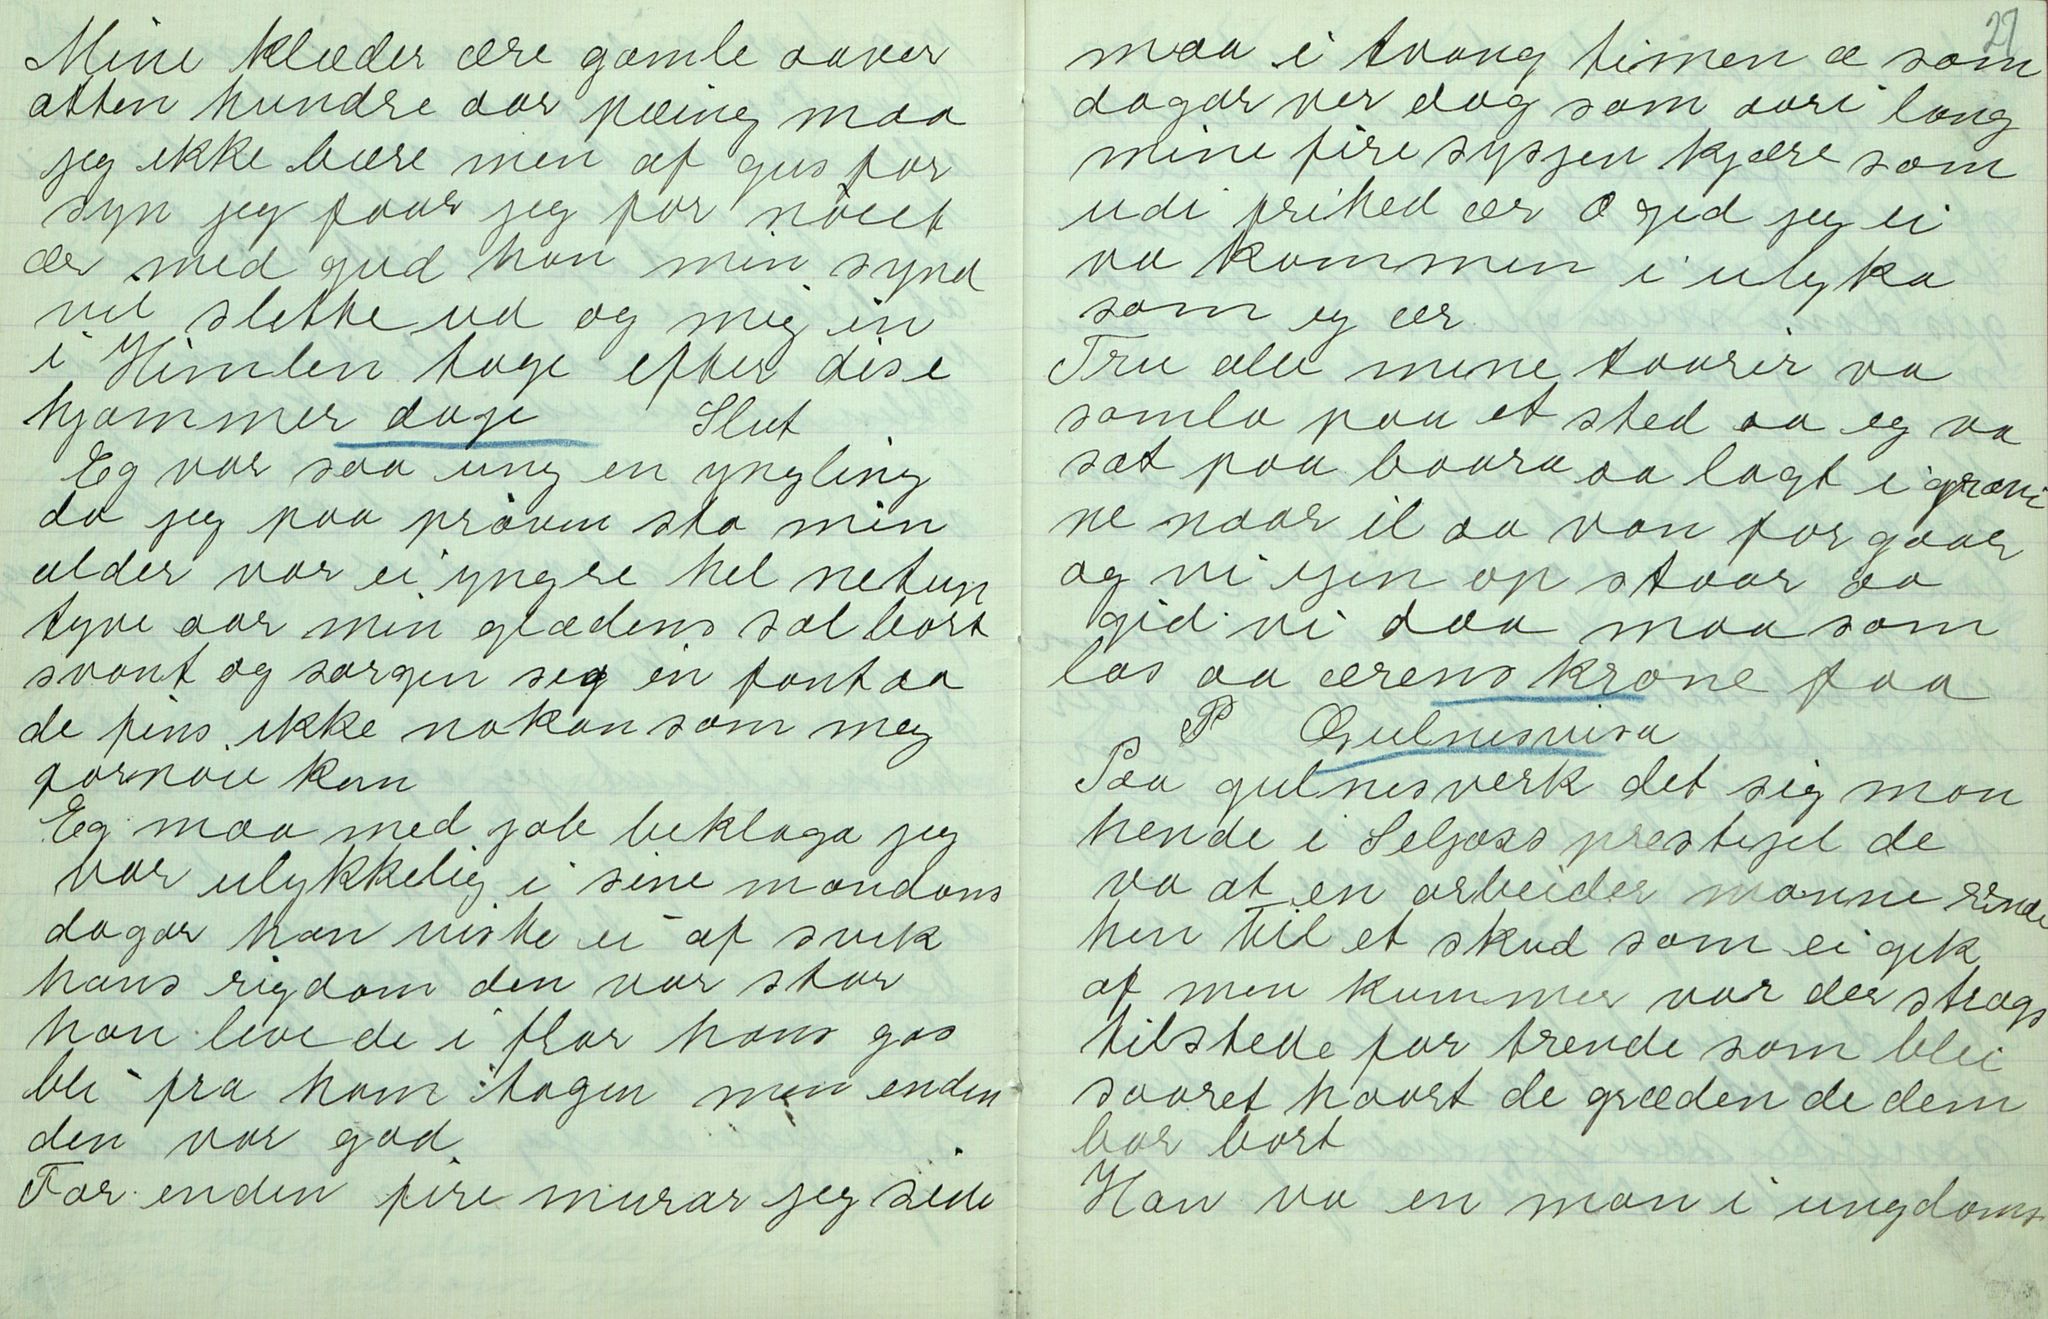 Mine klæder ære gamle aaver
atten hundre aar pæing maa
jeg ikke bære men af gus for
syn jeg faar jeg for nöiet
ær med gud han min synd
vil slette ud og mig in
i Himlen tage efter dise
hjammer dage Slut
Eg var saa ung en yngling
da jeg paa pröven sto min
alder var ei yngre hel netup
tyve aar min glædens sol bort
svant og sorgen seg in fant aa
de fins ikke nokon som meg
fornöie kan
Eg maa med job beklaga jeg
var ulykkelig i sine mandoms
dagar han viste ei af svik
hans rigdom den var stor
han leve de i flor hans gos
blei fra ham tagen men enden
den var god
For enden fire murar jeg side
27
maa i tvang timen æ som
dagar ver dag som aari lang
mine fire sysjen kjære som
udi frihed ær O gid jeg ei
va kommen i ulyka
som eg ær
Tru alle mine taarir va
samla paa et sted aa eg va
sæt paa baara aa lagt i græni
ne naar il aa van for gaar
og vi igen op staar aa
gid vi daa maa som
los aa ærens krone faa
P Gulnesvisa
Paa gulnesverk det sig mon
hende i Seljass prestejel de
va at en arbeider manne rende
hen til et skud som ei gik
af men kummer var der strags
tilstede for trende som blei
saaret haart de græden de dem
bar bort
Han va en man i ungdoms